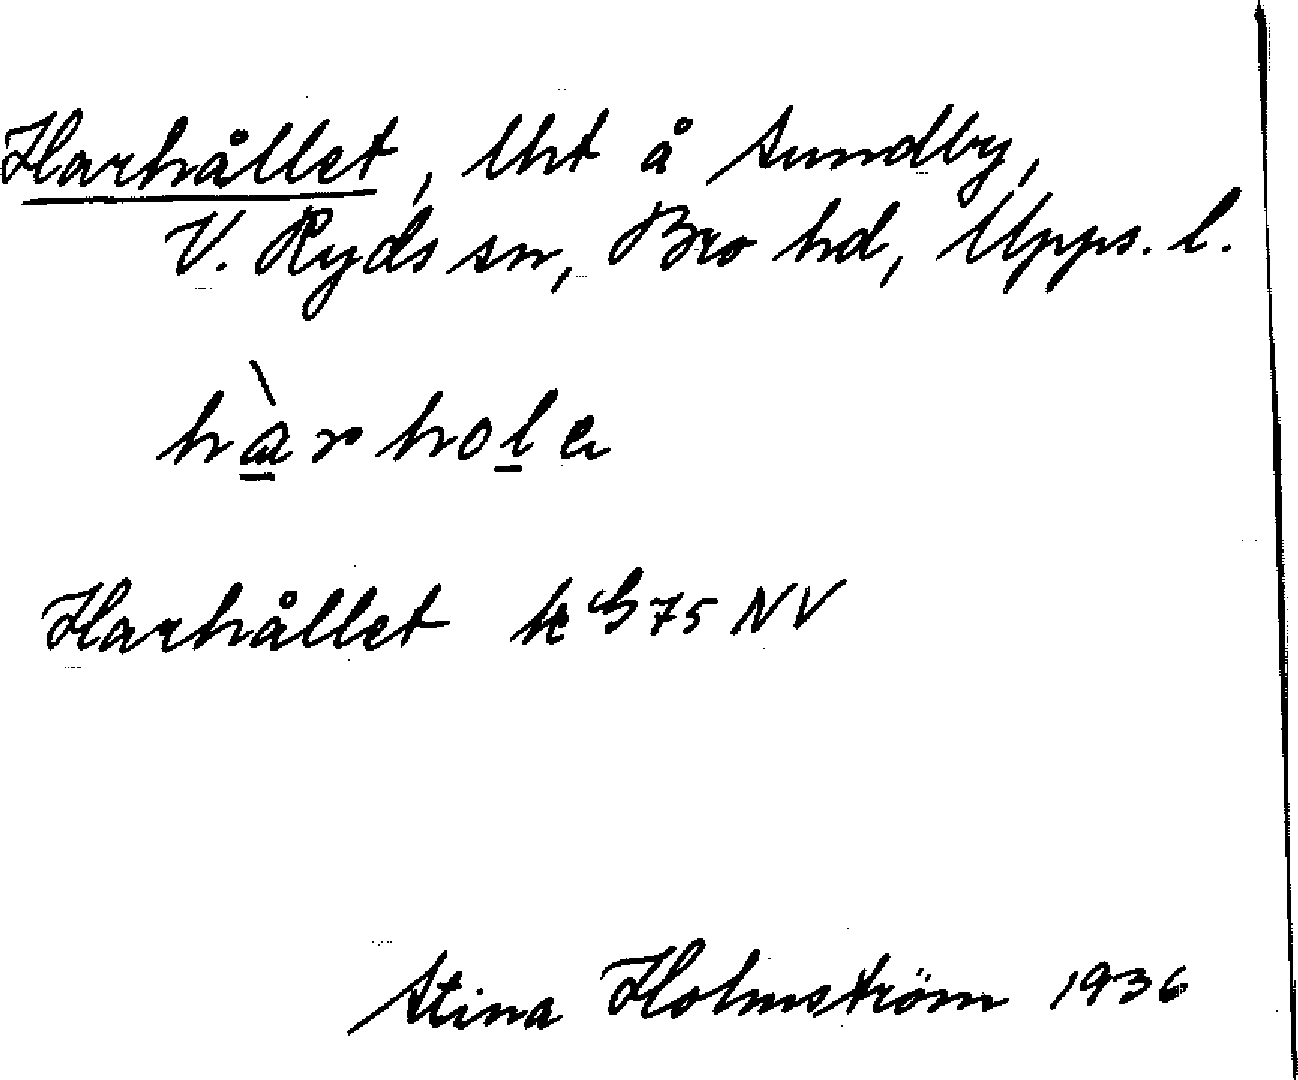 Harhållet, lht å Sundby,
V. Ryds sn, Bro hd, Upps. l.
hàrhola
Harhållet k G 75 NV
Stina Holmström 1936